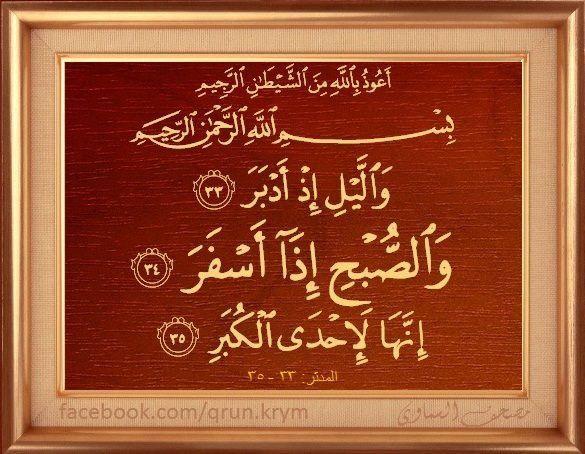 أَعُوذُ بِٱللَّهِ مِنَ ٱلشَّيْطَٰنِ ٱلرَّجِيمِ
بِسْمِ ٱللَّهِ ٱلرَّحْمَٰنِ ٱلرَّحِيمِ
وَٱلَّيْلِ إِذْ أَدْبَرَ ٣٣
وَٱلصُّبْحِ إِذَآ أَسْفَرَ ٣٤
إِنَّهَا لَإِحْدَى ٱلْكُبَرِ ٣٥
المدثر: ٣٣ - ٣٥
facebook.com/qrun.krym
مصحف السماوي